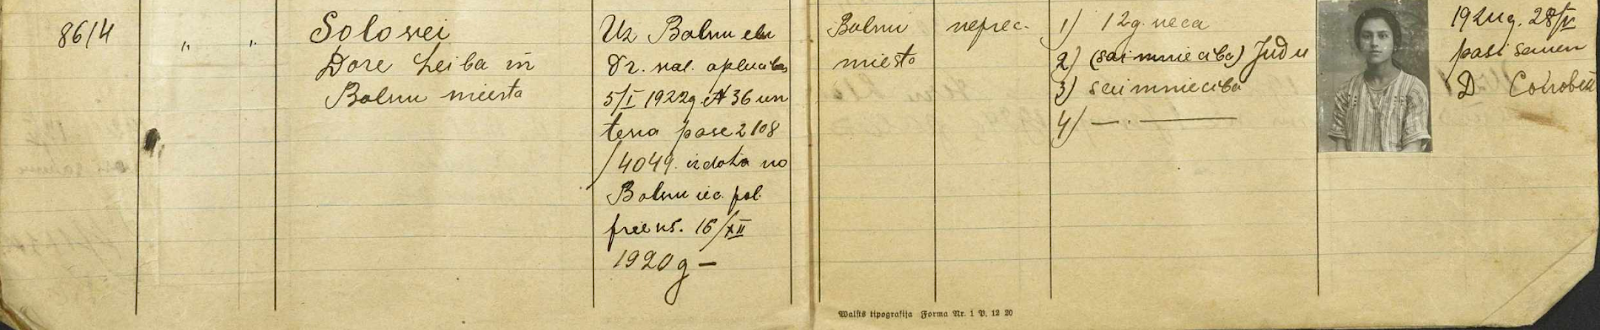 86/4 " "
Solovei
Dore Leiba m
Balvu miesta
Uz Balvu
Dr. val. apliecibas
5/I 1922g № 36 un
pase 2108
/4049. izdota no
Balvu iec. pol.
prieks. 16/XII
1920 g —
Balvu
miesta
neprec.
1) 12g. veca
2) (saimnieciba) Judu
3) saimnieciba
4) — . —
192 g. 28/IV
pasi sanem
D.
Walsts tipografija Forma Nr. 1 P. 12 20